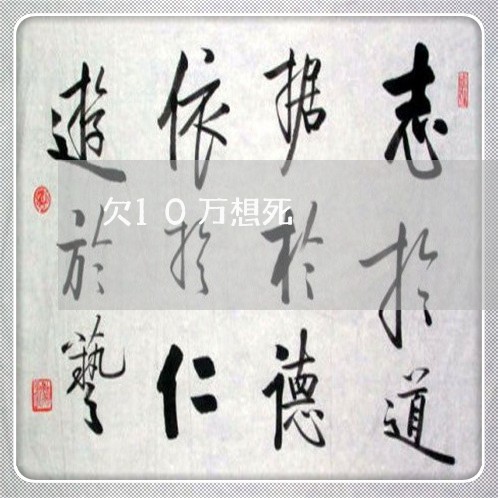 志於道
据於德
依於仁
遊於藝
欠10万想死